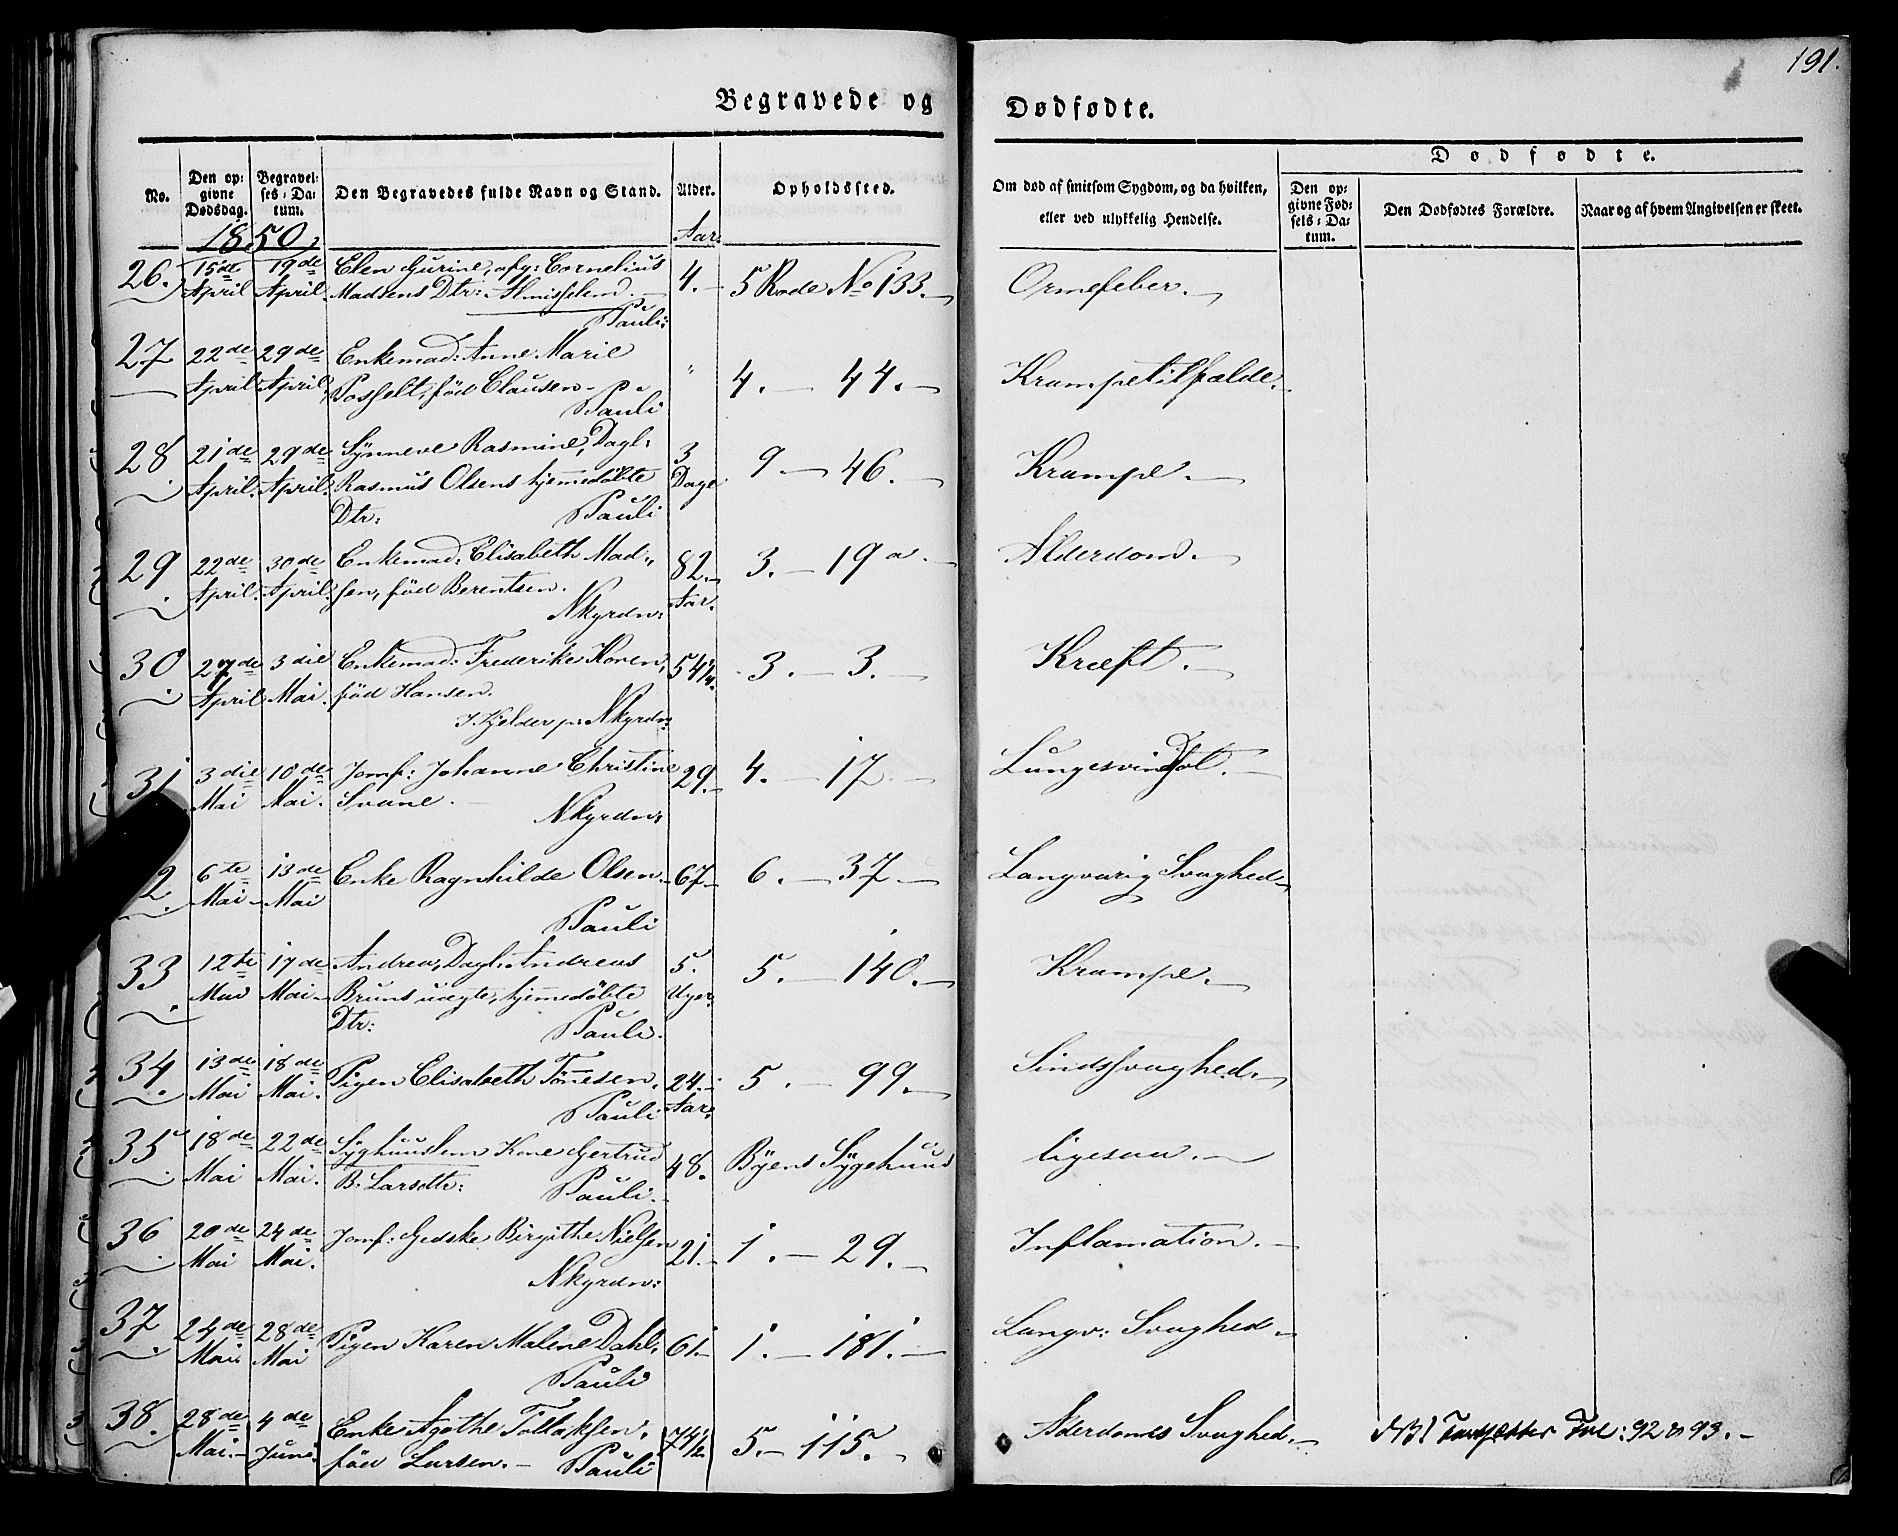 191.
Begravede og Dødfødte.
Dødfødte.
No.
Den opgivne Dødsdag.
Begravelses-Datum.
Den Begravedes fulde Navn og Stand.
Alder.
Opholdssted.
Om død af smitsom Sygdom, og da hvilken,
eller ved ulykkelig Hendelse.
Den opgivne Fødsels-Datum.
Den Dødfødtes Forældre.
Naar og af hvem Angivelsen er skeet.
1850,
Aar.
26. 15de April 19de April Elen Gurine, afg: Cornelius 4. 5 Rode No 133. Ormefeber.
Madsens Dtr:
Pauli:
27 22de April 29de April Enkemad: Anne Marie " 4. 44. Krampetilfælde.
Posselt, född Clausen
Pauli
28 21de April. 29de April. Synneve Rasmine, Dagl: 3 Dage 9 46. Krampe.
Rasmus Olsens hjemedøbte
Dtr: Pauli
29 22de April. 30de April. Enkemad: Elisabeth Mad- 82. Aar. 3. 19a. Alderdom.
sen, född Berentsen.
Nkyrdn:
30 27de April 3die Mai Enkemad: Frederike Konen, 54 1/4. 3. 3. Kræft.
född Hansen.
Nkyrdn:
31 3die Mai 10de Mai. Jomf: Johanne Christine 29. 4. 17 Lungesvindsot.
Svane.
Nkyrdn:
2 6te Mai 13de Mai Enke Ragnhilde Olsen 67 6. 37 Langvarig Svaghed
Pauli
33 12te Mai 17de Mai Andrea, Dagl: Andreas 5. Uger. 5. 140. Krampe.
Bruns uægte, hjemedøbte
Dtr: Pauli.
34 13de Mai 18de Mai. Pigen Elisabeth Tönesen. 24. Aar. 5. 99. Sindssvaghed.
Pauli
35 18de Mai 22de Mai. Syghuuslem Kone Gertrud 48. Byens Sygehuus ligesaa.
B. Larsdtr: Pauli.
36 20de Mai 24de Mai. Jomf. Gedske Birgithe Nielsen 21. 1. 29. Inflamation.
Nkyrdn:
37 24de Mai 28de Mai Pigen Karen Malene Dahl. 61 1. 181. Langv: Svaghed
Pauli
38. 28de Mai. 4de Juni. Enke Agathe Tollaksen, 74 1/2 5. 115. Alderdoms Svaghed.
född Larsen. Pauli
NB! Fortsættes Fol: 92 & 93.